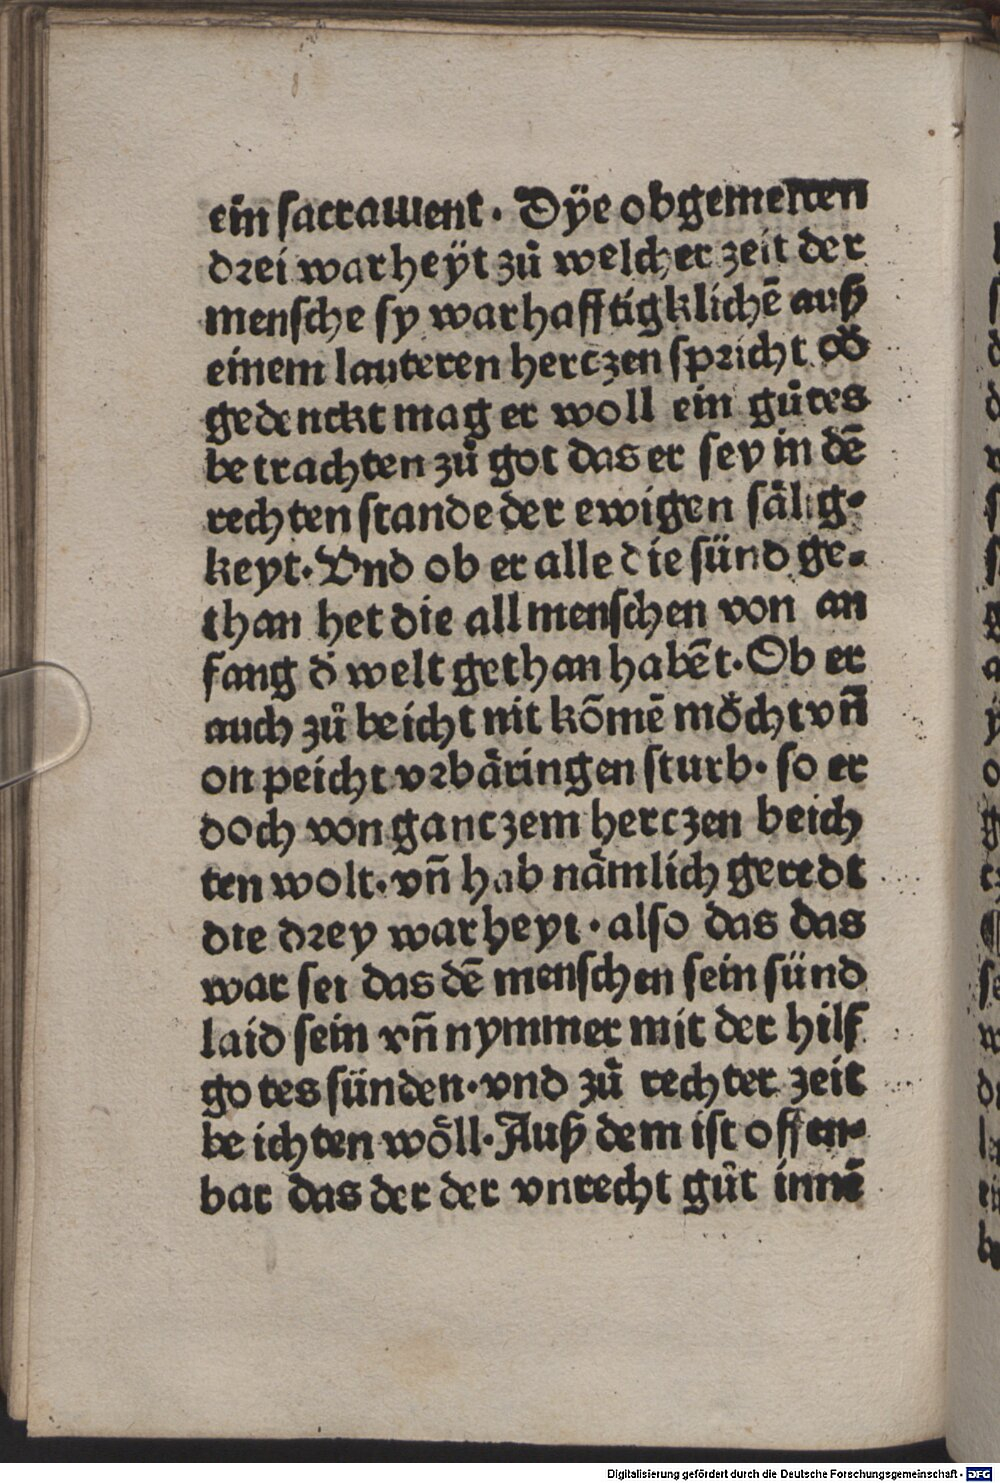 ein sacrament. Dÿe obgemelten
drei warheÿt zů welcher zeit der
mensche sy warhafftigklichē auß
einem lauteren hertzen spricht od̕
gedenckt mag er woll ein gůtes
betrachten zů got das er sey in dē
rechten stande der ewigen sälig⸗
keyt. Vnd ob er alle die sünd ge⸗
than het die all menschen von an
fang d̕ welt gethan habēt. Ob er
auch zů beicht nit kōmē möcht vñ
on peicht vrbäringen sturb. so er
doch von gantzem hertzen beich
ten wolt. vñ hab nämlich geredt
die drey warheyt. also das das
war sei das dē menschen sein sünd
laid sein vñ nymmer mit der hilf
gotes sünden. vnd zů rechter zeit
beichten wöll. Auß dem ist offen⸗
bar das der der vnrecht gůt innē
Digitalisierung gefördert durch die Deutsche Forschungsgemeinschaft - DFG